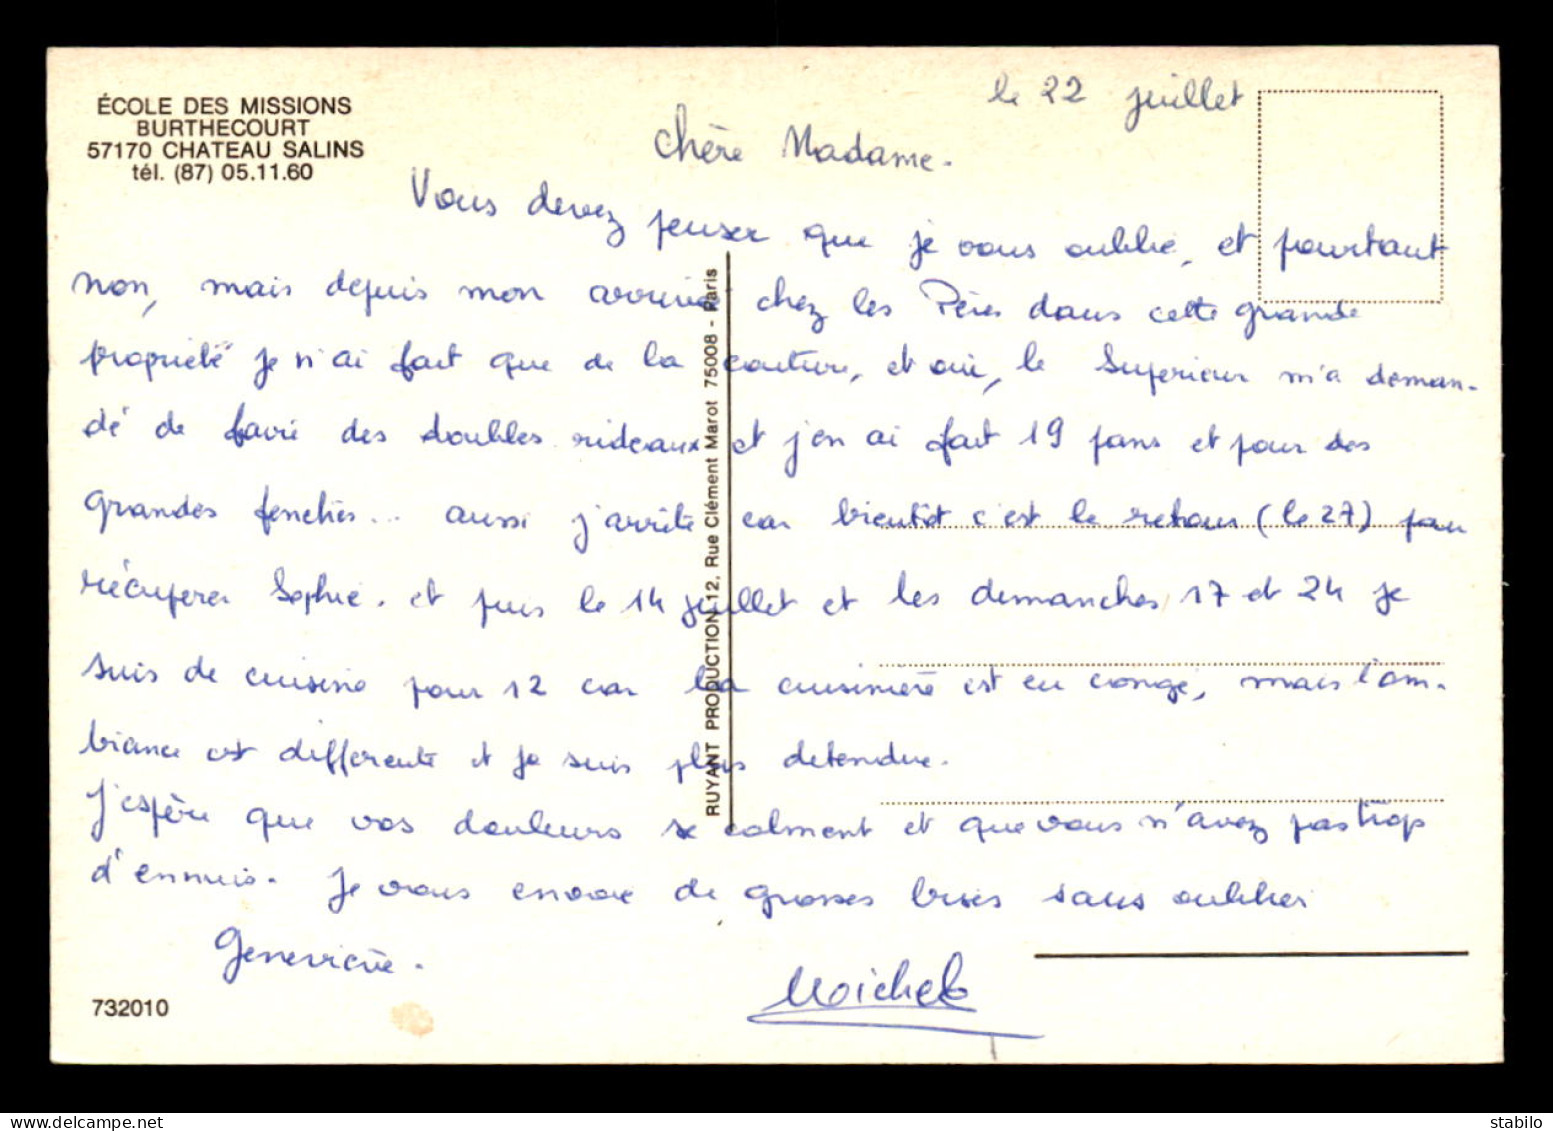 ÉCOLE DES MISSIONS
BURTHECOURT
57170 CHATEAU SALINS
tél. (87) 05.11.60
le 22 juillet
Chère Madame.
Vous devez penser que je vous oublie, et pourtant
non, mais depuis mon arrivée chez les Pères dans cette grande
propriété je n'ai fait que de la couture, et oui, le Supérieur m'a deman-
dé de faire des doubles rideaux et j'en ai fait 19 pans et pour des
grandes fenêtres... aussi j'arrête car bientôt c'est le retour (le 27) pour
récuperer Sophie. et puis le 14 juillet et les dimanches 17 et 24 je
suis de cuisine pour 12 car la cuisinière est en congé, mais l'am-
biance est differente et je suis plus detendue.
J'espère que vos douleurs se calment et que vous n'avez pas trop
d'ennuis. Je vous envoie de grosses bises sans oublier
Geneviève.
Michel
RUYANT PRODUCTION 12, Rue Clément Marot 75008 - Paris
732010
www.delcampe.net
stampilo